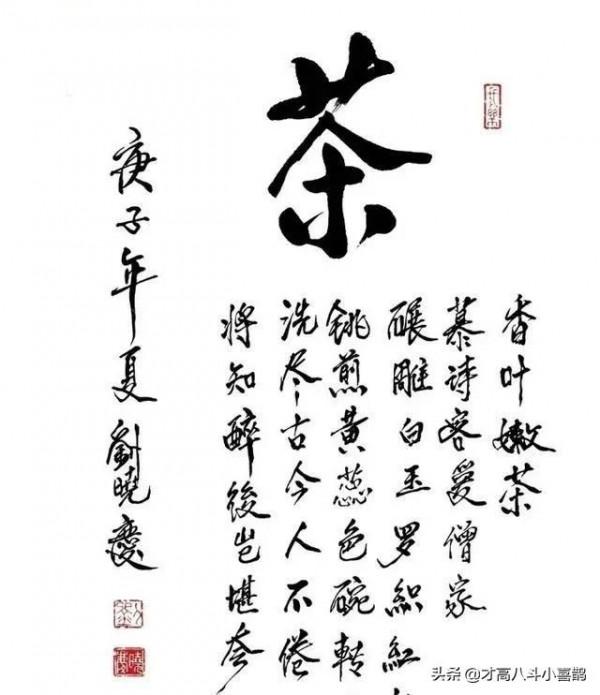 茶
香叶嫩茶
慕诗客爱僧家
碾雕白玉罗织红
铫煎黄蕊色碗轉
洗尽古今人不倦
将知醉後岂堪夸
庚子年夏劉曉慶
头条 @才高八斗小喜鹊